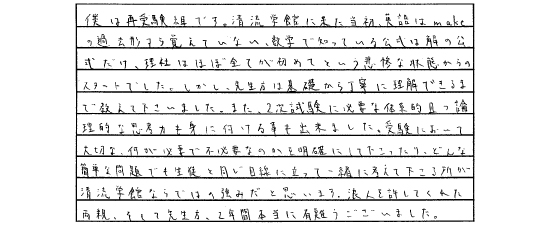 僕は再受験組です。清流学館に来た当初、英語はmake
の過去形すら覚えていない、数学で知っている公式は解の公
式だけ、理社はほぼ全てが初めてという悲惨な状態からの
スタートでした。しかし、先生方は基礎から丁寧に理解できるま
で教えて下さいました。また、2次試験に必要な体系的且つ論
理的な思考力も身に付ける事も出来ました。受験において
大切な、何が必要で不必要なのかを明確にして下さったり、どんな
簡単な問題でも生徒と同じ目線に立って一緒に考えて下さる所が
清流学館ならではの強みだと思います。浪人を許してくれた
両親、そして先生方、2年間本当に有難うございました。